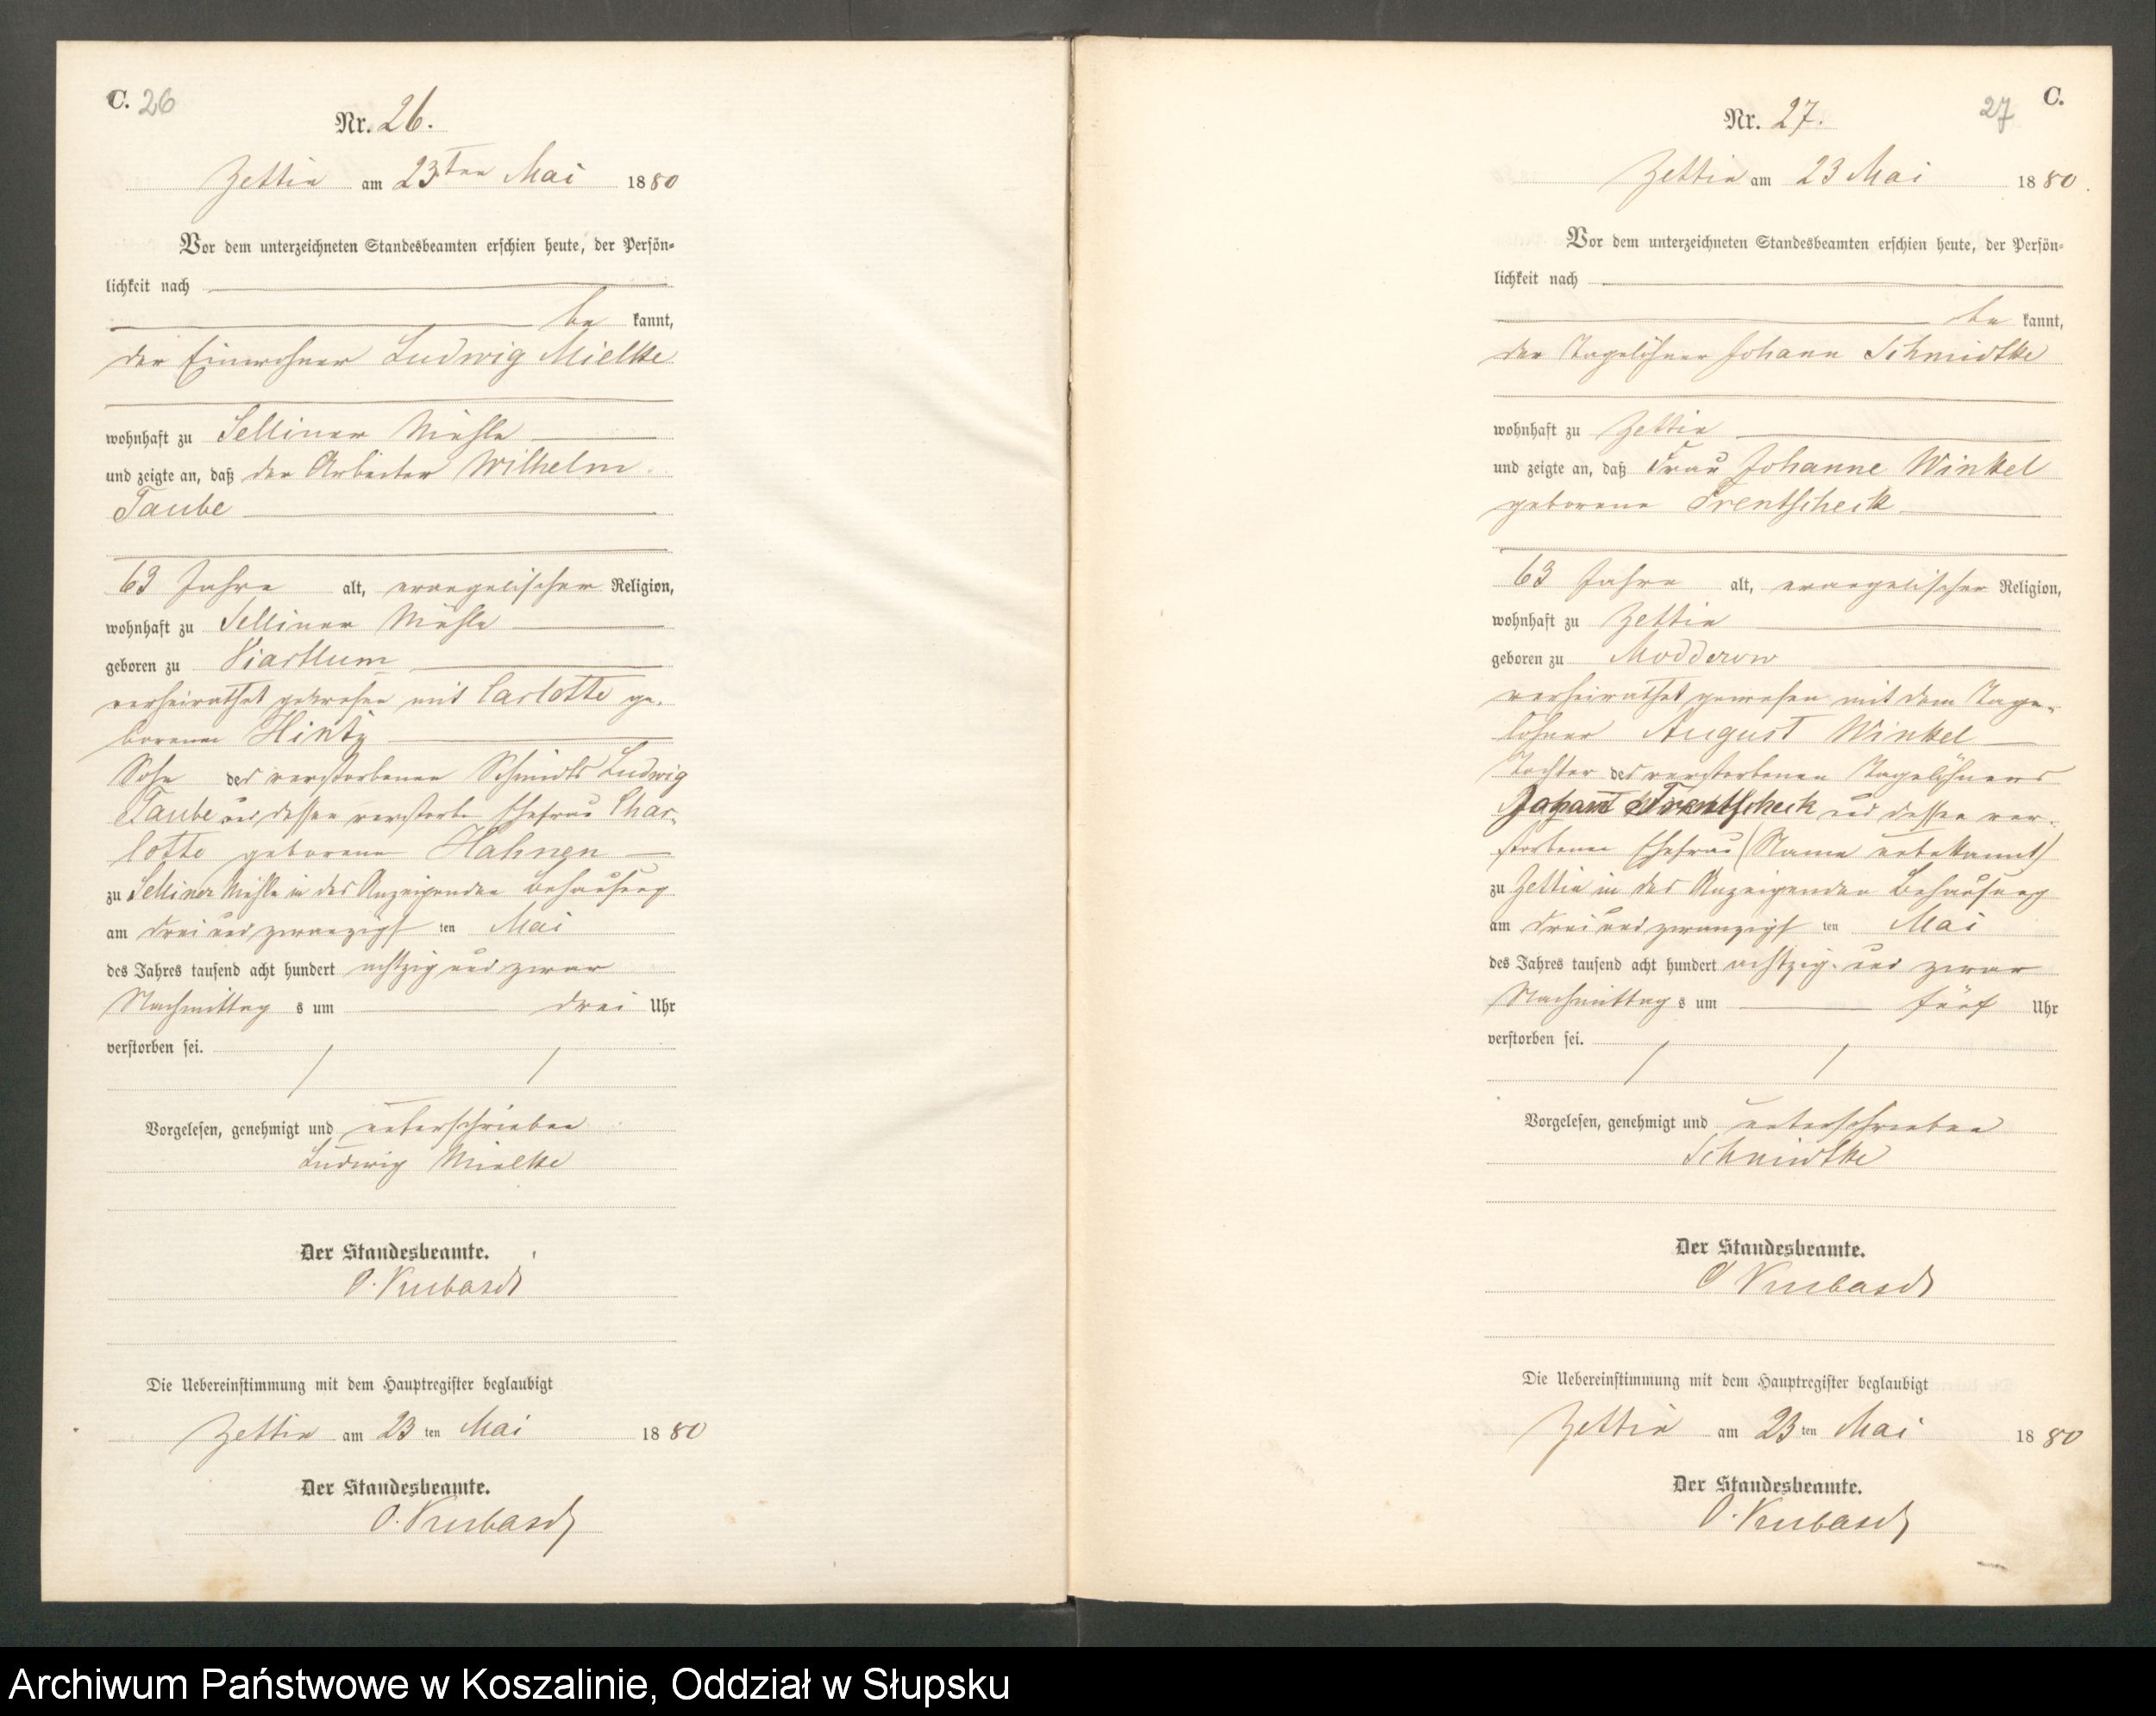 C. 26
Nr. 26.
Zettin am 23ten Mai 1880
Vor dem unterzeichneten Standesbeamten erschien heute, der Persön-
lichkeit nach
be kannt,
der Einwohner Ludwig Mielke
wohnhaft zu Selliner Mühle
und zeigte an, daß der Arbeiter Wilhelm
Taube
63 Jahre alt, evangelischer Religion,
wohnhaft zu Selliner Mühle
geboren zu Viartlum
verheirathet gewesen mit Carlotte ge-
borene Hintz
Sohn des verstorbenen Schmids Ludwig
Taube und dessen verstorb. Ehefrau Char-
lotte geborene Hahnen
zu Selliner Mühle in des Anzeigenden Behausung
am drei und zwanzigst ten Mai
des Jahres tausend acht hundert achtzig und zwar
Nachmittag s um drei Uhr
verstorben sei.
Vorgelesen, genehmigt und unterschrieben
Ludwig Mielke
Der Standesbeamte.
O. Kubasch
Die Uebereinstimmung mit dem Hauptregister beglaubigt
Zettin am 23 ten Mai 1880
Der Standesbeamte.
O. Kubasch
27 C.
Nr. 27.
Zettin am 23 Mai 1880.
Vor dem unterzeichneten Standesbeamten erschien heute, der Persön-
lichkeit nach
be kannt,
der Tagelöhner Johann Schmidtke
wohnhaft zu Zettin
und zeigte an, daß Frau Johanne Winkel
geborene Trentscheck
63 Jahre alt, evangelischer Religion,
wohnhaft zu Zettin
geboren zu Modderow
verheirathet gewesen mit dem Tage-
löhner August Winkel
Tochter des verstorbenen Tagelöhners
Johann Trentscheck und dessen ver-
storbene Ehefrau (Name unbekannt)
zu Zettin in des Anzeigenden Behausung
am drei und zwanzigst ten Mai
des Jahres tausend acht hundert achtzig und zwar
Nachmittag s um fünf Uhr
verstorben sei.
Vorgelesen, genehmigt und unterschrieben
Schmidtke
Der Standesbeamte.
O Kubasch
Die Uebereinstimmung mit dem Hauptregister beglaubigt
Zettin am 23 ten Mai 1880
Der Standesbeamte.
O. Kubasch
Archiwum Państwowe w Koszalinie, Oddział w Słupsku